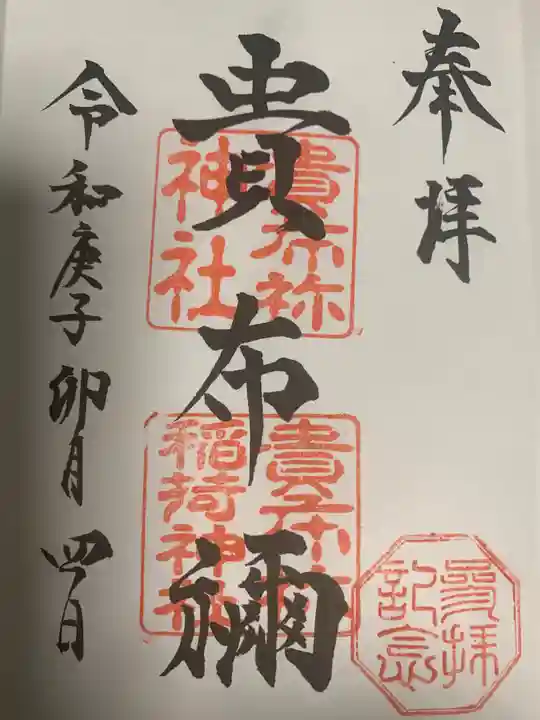 奉拝
貴布禰
令和庚子卯月四日
貴布祢
神社
稲荷神社
参拝
記念